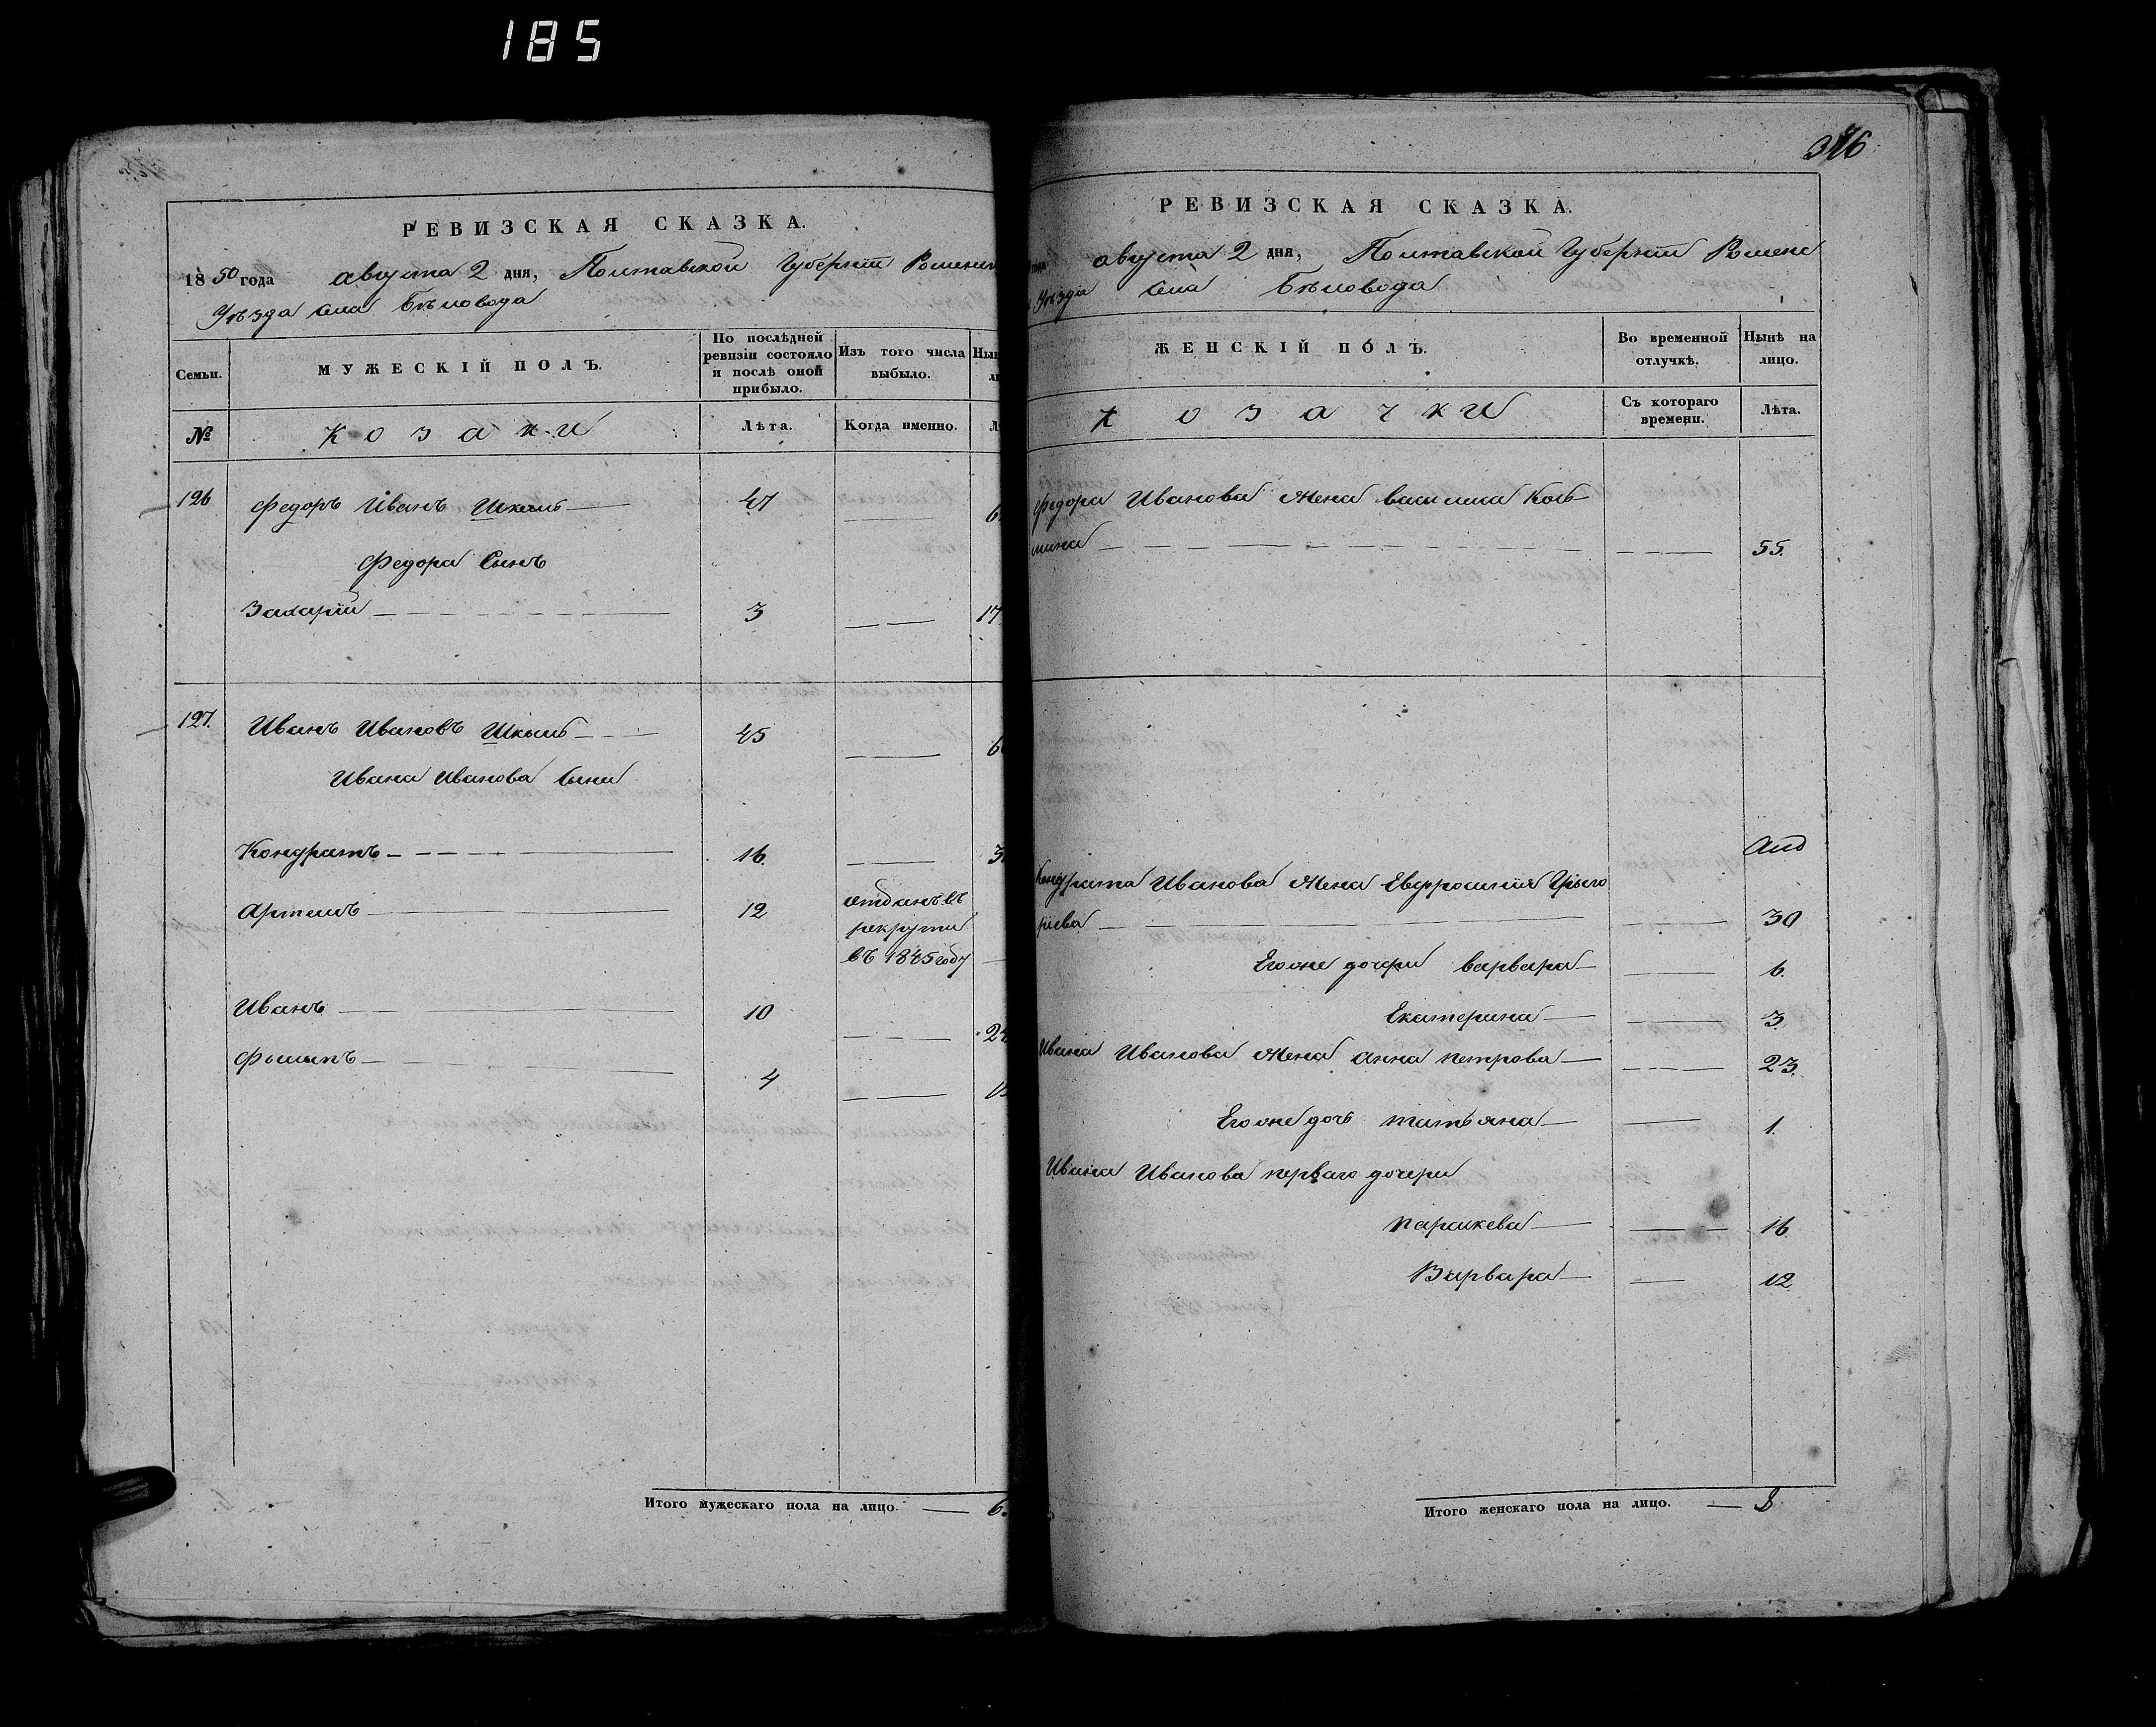 185
РЕВИЗСКАЯ СКАЗКА.
1850 года августа 2 дня, Полтавской Губерніи Роменск
Уѣзда Села Бѣловода
Семьи.
МУЖЕСКІЙ ПОЛЪ.
По послѣдней ревизіи состояло и послѣ оной прибыло.
Изъ того числа выбыло.
№
Козаки
Лѣта.
Когда именно.
126 Федоръ Иванъ Шкыль 47
Федора Сынъ
Захарій 3 17
127. Иванъ Ивановъ Шкыль 45
Ивана Иванова Сыны
Кондратъ 16.
Артемъ 12 отданъ въ
рекруты
въ 1845 году
Иванъ 10
Филипъ 4
Итого мужескаго пола на лицо. 6.
376
РЕВИЗСКАЯ СКАЗКА.
года августа 2 дня, Полтавской Губерніи Роменс
Уѣзда Села Бѣловода
ЖЕНСКІЙ ПОЛЪ.
Во временной отлучкѣ.
Нынѣ на лицо.
Козачки
Съ котораго времени.
Лѣта.
Федора Иванова жена Василиса Козь
мина 55.
Кондрата Иванова жена Евфросинія Григо
ріева 30
Его же дочери Варвара 6.
Екатерина 3.
Ивана Иванова жена Анна Петрова 23.
Его же дочь Татьяна 1.
Ивана Иванова перваго дочери
Параскева 16
Варвара 12.
Итого женскаго пола на лицо. 8